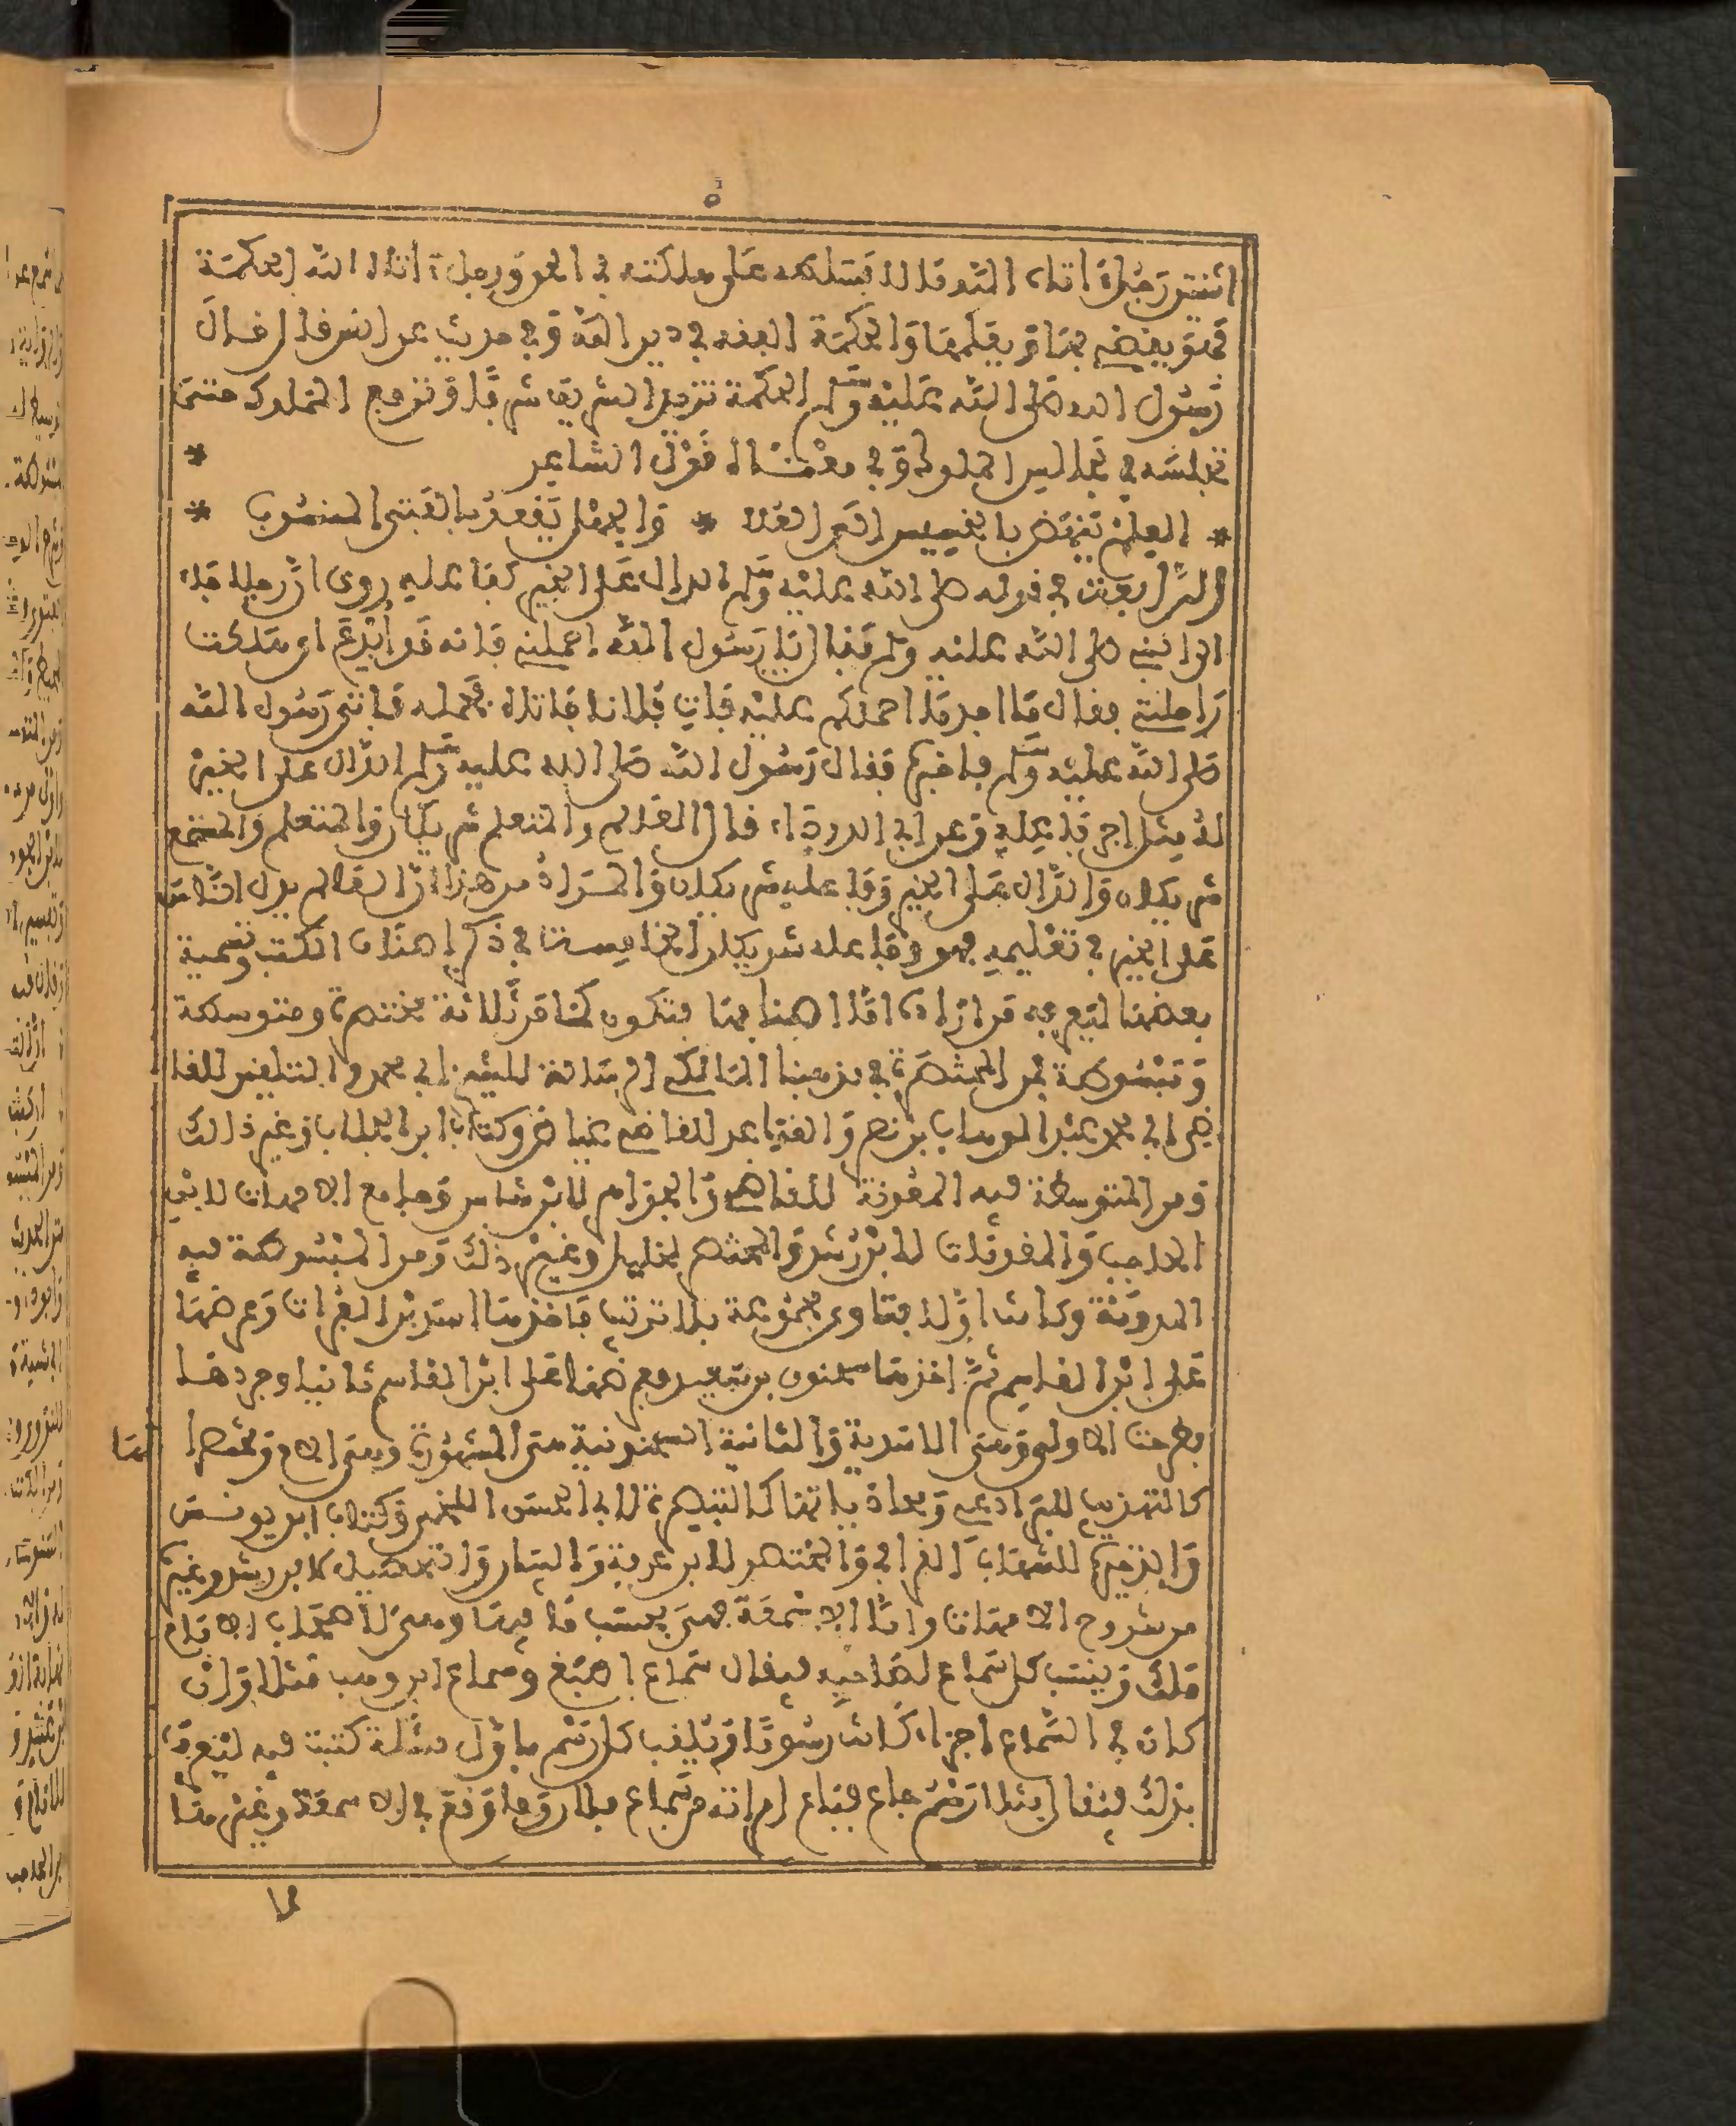 ٥
اثنتين رجل اتاه الله مالا فسلطه على هلكته في الحق ورجل اتاه الله الحكمة
فهو يقضي بها ويعلمها والحكمة الفقه في دين الله وفي حديث عن انس قال قال
رسول الله صلى الله عليه وسلم الحكمة تزيد الشريف شرفا وترفع المملوك حتى
تجلسه في مجالس الملوك وفي معناه قول الشاعر *
* العلم ينهض بالخسيس الى العلا * والجهل يقعد بالفتى المنسوب *
الرابعة في قوله صلى الله عليه وسلم الدال على الخير كفاعله روي ان رجلا جاء
الى النبي صلى الله عليه وسلم فقال يا رسول الله احملني فانه قد ابدع اي هلكت
راحلتي فقال ما اجد ما احملكم عليه فات فلانا فاتاه فحمله فاتى رسول الله
صلى الله عليه وسلم فاخبره فقال رسول الله صلى الله عليه وسلم الدال على الخير
له مثل اجر فاعله وعن ابي الدرداء قال العالم والمتعلم شريكان والمتعلم والمستمع
شريكان والدال على الخير وفاعله شريكان والمراد من هذا ان العالم يدل الناس
على الخير في تعليمه فهو وفاعله شريكان الخامسة في ذكر امهات الكتب وتسمية
بعضها ليعرفه من اراده اما امهاتها فتكون كما مر ثلاثة مختصرة ومتوسطة
ومبسوطة فمن المختصرة في مذهبنا المالكي الرسالة للشيخ ابي محمد والتلقين للقا
ضي ابي محمد عبد الوهاب بن نصر والقواعد للقاضي عياض وكتاب ابن الجلاب وغير ذالك
ومن المتوسطة فيه المعونة للقاضي والجواهر لابن شاس وجامع الامهات لابن
الحاجب والمقدمات لابن رشد والمختصر لخليل وغير ذلك ومن المبسوطة فيه
المدونة وكانت اولا فتاوى مجموعة بلا ترتيب فاخذها اسد بن الفرات وعرضها
على ابن القاسم ثم اخذها سحنون بن سعيد وعرضها على ابن القاسم ثانيا وجردها
وطرحت الاولى وهي الاسدية والثانية السحنونية هي المشهورة وهي الام ومختصرا تها
كالتهذيب للبرادعي ومحاذياتها كالتبصرة لابي الحسن اللخمي وكتاب ابن يونس
والذخيرة للشهاب القرافي والمختصر لابن عرفة والبيان والتحصيل لابن رشد وغيره
من شروح الامهات واما الاسمعة فهي بحسب ما فيها وهي لاصحاب الامام
مالك وينسب كل سماع لصاحبه فيقال سماع اصبغ وسماع ابن وهب مثلا وان
كان في السماع اجزاء كانت رسوما وتلقب كل رسم باول مسئلة كتبت فيه ليعرف
بذلك فيقال مثلا رسم جاع فباع امراته من سماع فلان وما وقع في الاسمعة وغيرها
لها